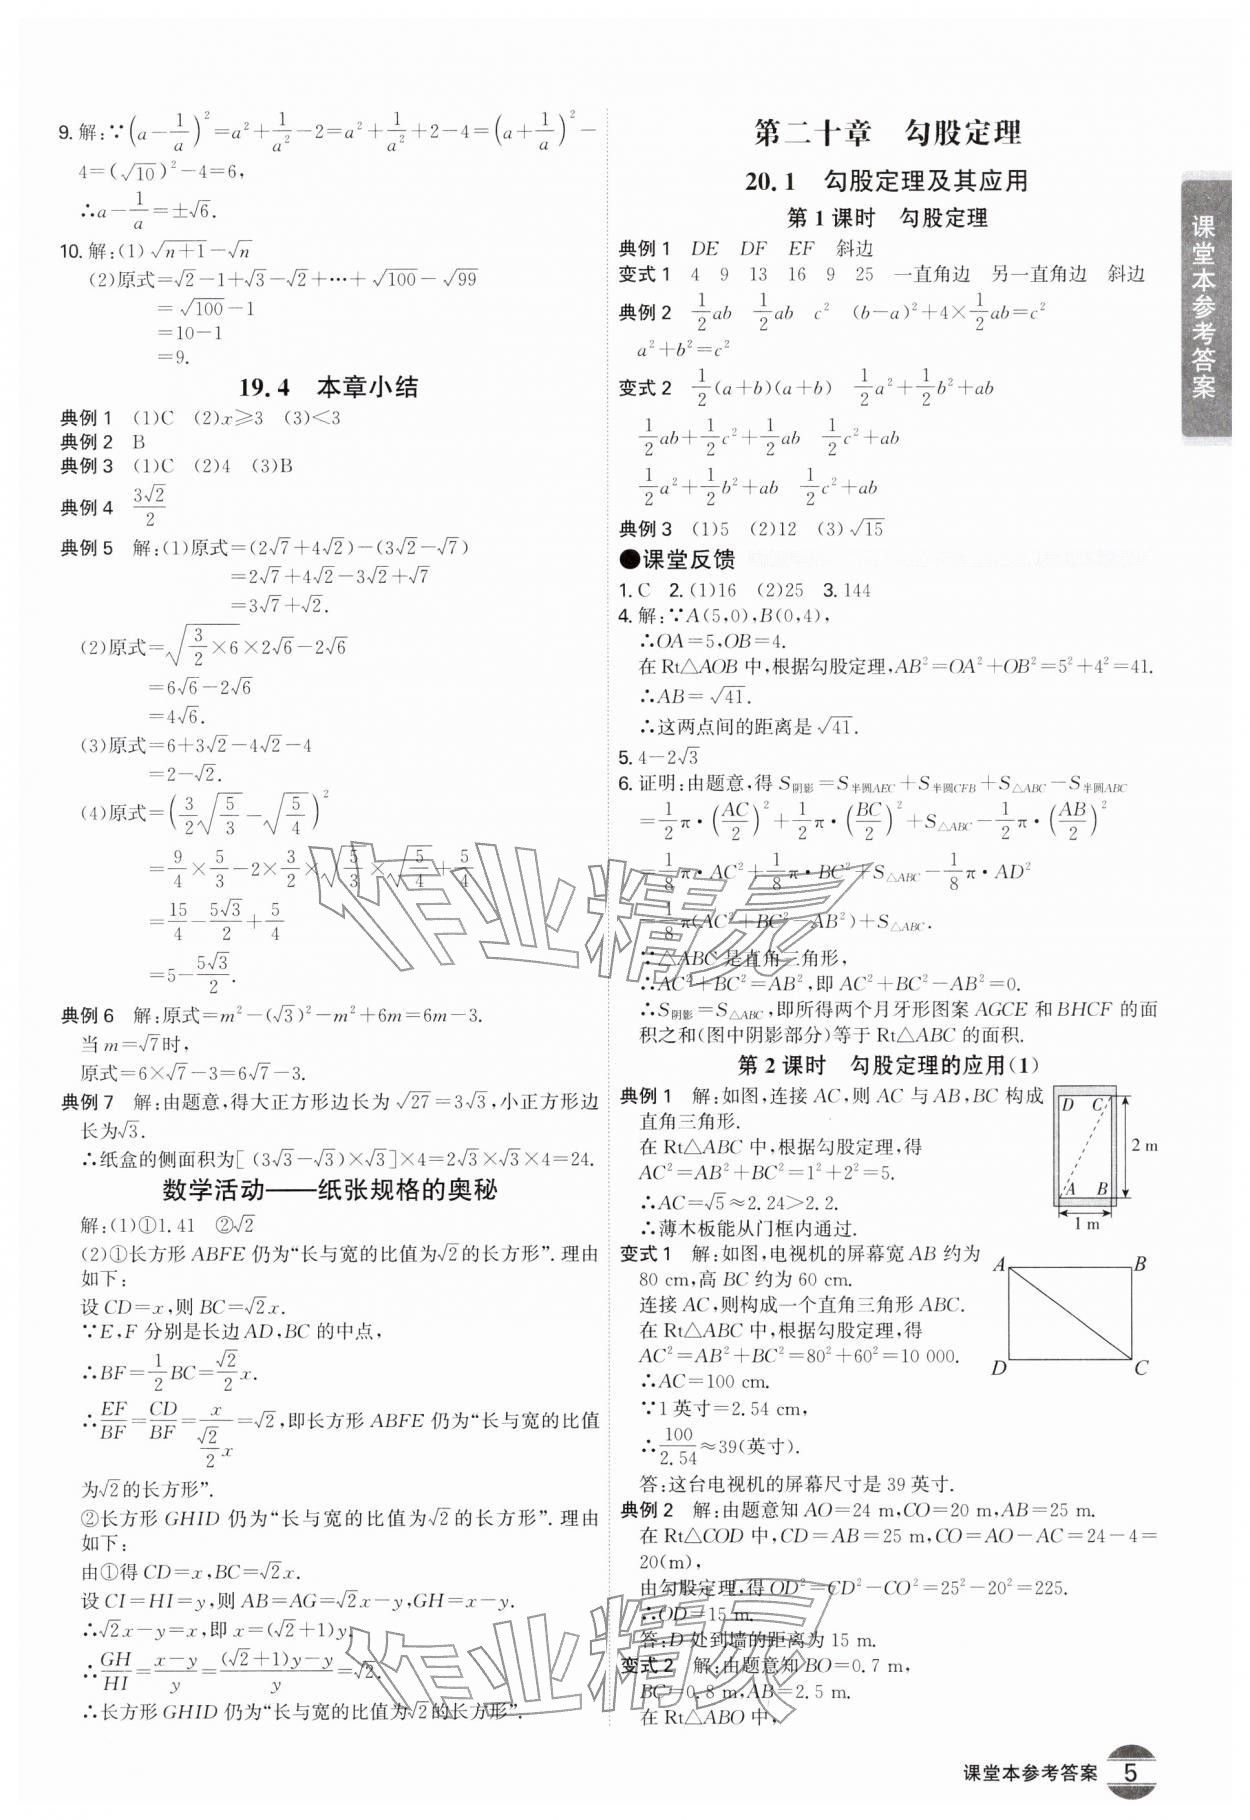 9. 解:∵(a−1/a)²=a²+1/a²−2=a²+1/a²+2−4=(a+1/a)²−
4=(√10)²−4=6,
∴a−1/a=±√6.
10. 解:(1)√(n+1)−√n
(2)原式=√2−1+√3−√2+···+√100−√99
=√100−1
=10−1
=9.
19.4 本章小结
典例1 (1)C (2)x≥3 (3)<3
典例2 B
典例3 (1)C (2)4 (3)B
典例4 3√2/2
典例5 解:(1)原式=(2√7+4√2)−(3√2−√7)
=2√7+4√2−3√2+√7
=3√7+√2.
(2)原式=√(3/2×6)×2√6−2√6
=6√6−2√6
=4√6.
(3)原式=6+3√2−4√2−4
=2−√2.
(4)原式=(3/2√(5/3)−√(5/4))²
=9/4×5/3−2×3/2×√(5/3)×√(5/4)+5/4
=15/4−5√3/2+5/4
=5−5√3/2.
典例6 解:原式=m²−(√3)²−m²+6m=6m−3.
当m=√7时,
原式=6×√7−3=6√7−3.
典例7 解:由题意,得大正方形边长为√27=3√3,小正方形边
长为√3.
∴纸盒的侧面积为[(3√3−√3)×√3]×4=2√3×√3×4=24.
数学活动——纸张规格的奥秘
解:(1)①1.41 ②√2
(2)①长方形ABFE仍为“长与宽的比值为√2的长方形”.理由
如下:
设CD=x,则BC=√2x.
∵E,F分别是长边AD,BC的中点,
∴BF=1/2BC=√2/2x.
∴EF/BF=CD/BF=x/(√2/2x)=√2,即长方形ABFE仍为“长与宽的比值
为√2的长方形”.
②长方形GHID仍为“长与宽的比值为√2的长方形”.理由
如下:
由①得CD=x,BC=√2x.
设CI=HI=y,则AB=AG=√2x−y,GH=x−y.
∴√2x−y=x,即x=(√2+1)y,
∴GH/HI=(x−y)/y=((√2+1)y−y)/y=√2.
∴长方形GHID仍为“长与宽的比值为√2的长方形”.
第二十章 勾股定理
20.1 勾股定理及其应用
第1课时 勾股定理
典例1 DE DF EF 斜边
变式1 4 9 13 16 9 25 一直角边 另一直角边 斜边
典例2 1/2ab 1/2ab c² (b−a)²+4×1/2ab=c²
a²+b²=c²
变式2 1/2(a+b)(a+b) 1/2a²+1/2b²+ab
1/2ab+1/2c²+1/2ab 1/2c²+ab
1/2a²+1/2b²+ab 1/2c²+ab
典例3 (1)5 (2)12 (3)√15
●课堂反馈
1. C 2. (1)16 (2)25 3. 144
4. 解:∵A(5,0),B(0,4),
∴OA=5,OB=4.
在Rt△AOB中,根据勾股定理,AB²=OA²+OB²=5²+4²=41.
∴AB=√41.
∴这两点间的距离是√41.
5. 4−2√3
6. 证明:由题意,得S阴影=S半圆AEC+S半圆CFB+S△ABC−S半圆ABC
=1/2π·(AC/2)²+1/2π·(BC/2)²+S△ABC−1/2π·(AB/2)²
=1/8π·AC²+1/8π·BC²+S△ABC−1/8π·AD²
=1/8π(AC²+BC²−AB²)+S△ABC.
∵△ABC是直角三角形,
∴AC²+BC²=AB²,即AC²+BC²−AB²=0.
∴S阴影=S△ABC,即所得两个月牙形图案AGCE和BHCF的面
积之和(图中阴影部分)等于Rt△ABC的面积.
第2课时 勾股定理的应用(1)
典例1 解:如图,连接AC,则AC与AB,BC构成
直角三角形.
在Rt△ABC中,根据勾股定理,得
AC²=AB²+BC²=1²+2²=5.
∴AC=√5≈2.24>2.2.
∴薄木板能从门框内通过.
D C
2 m
A B
1 m
变式1 解:如图,电视机的屏幕宽AB约为
80 cm,高BC约为60 cm.
连接AC,则构成一个直角三角形ABC.
在Rt△ABC中,根据勾股定理,得
AC²=AB²+BC²=80²+60²=10 000.
∴AC=100 cm.
∵1英寸=2.54 cm,
∴100/2.54≈39(英寸).
答:这台电视机的屏幕尺寸是39英寸.
A B
D C
典例2 解:由题意知AO=24 m,CO=20 m,AB=25 m.
在Rt△COD中,CD=AB=25 m,CO=AO−AC=24−4=
20(m),
由勾股定理,得OD²=CD²−CO²=25²−20²=225.
∴OD=15 m.
答:D处到墙的距离为15 m.
变式2 解:由题意知BO=0.7 m,
BC=0.8 m,AB=2.5 m.
在Rt△ABO中,
课堂本参考答案
课堂本参考答案 5
作业精灵
作业精灵